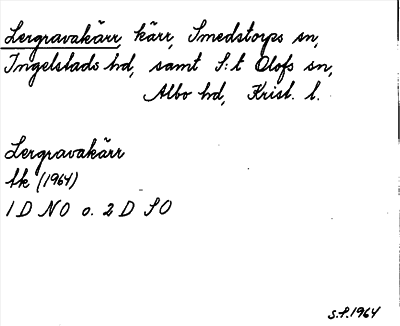 Lergravakärr, kärr, Smedstorps sn,
Ingelstads hd, samt S:t Olofs sn,
Albo hd, Krist. l.
Lergravakärr
tk (1964)
1 D NO o. 2 D SO
s.f. 1964